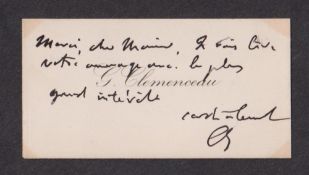 Merci, cher Monsieur, Je vais lire
votre ouvrage avec le plus
G. Clemenceau
grand intérêt
cordialement